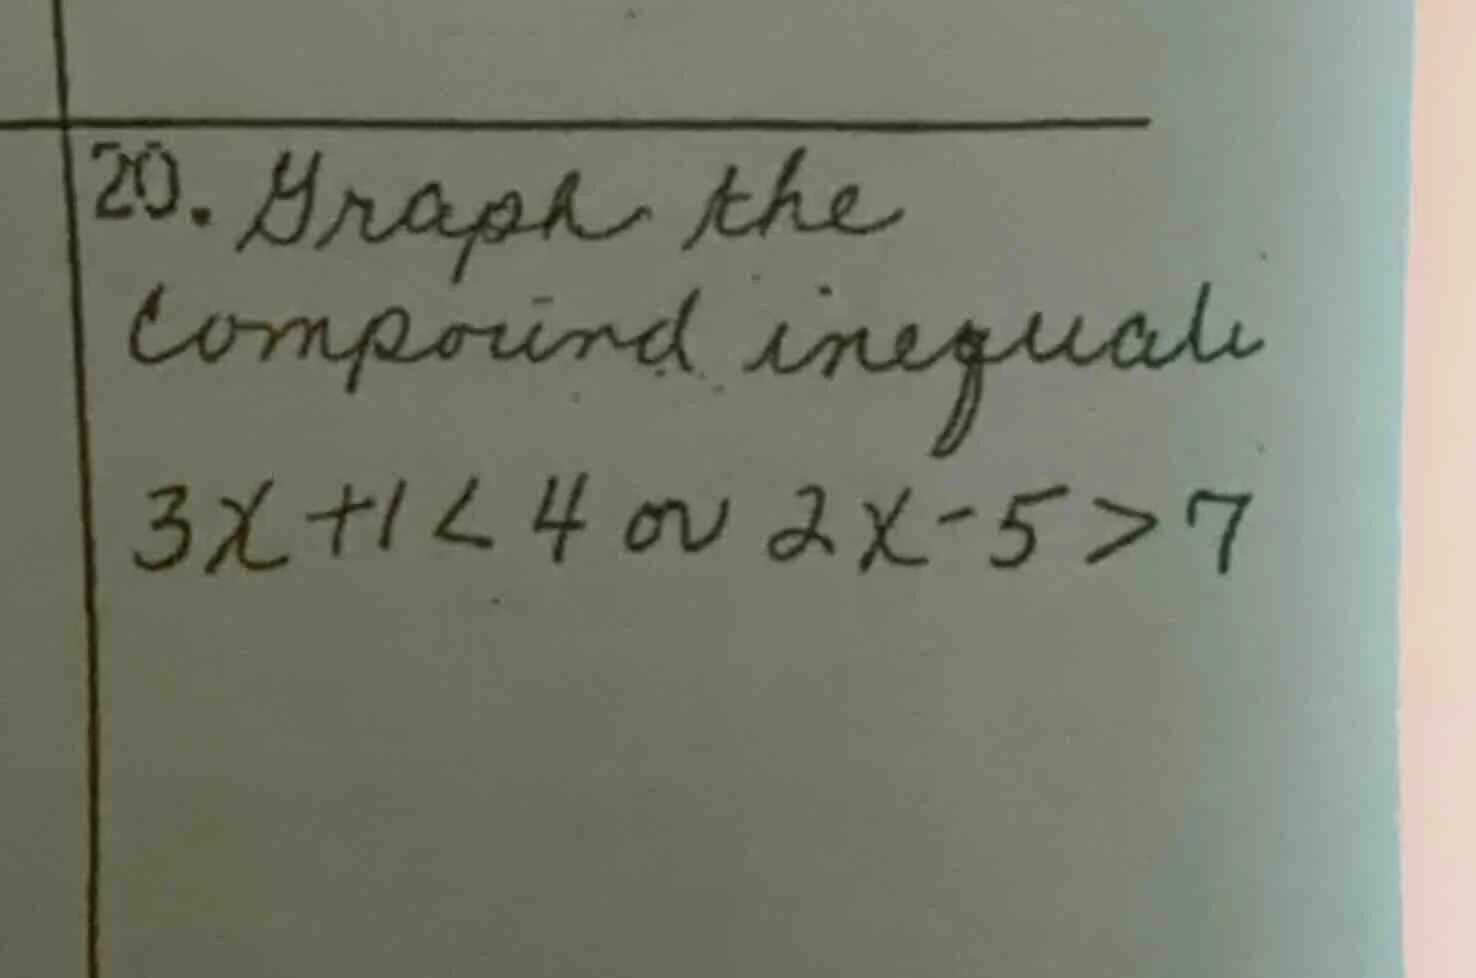 20. Graph the
compound inequali
3x+1<4 or 2x-5>7